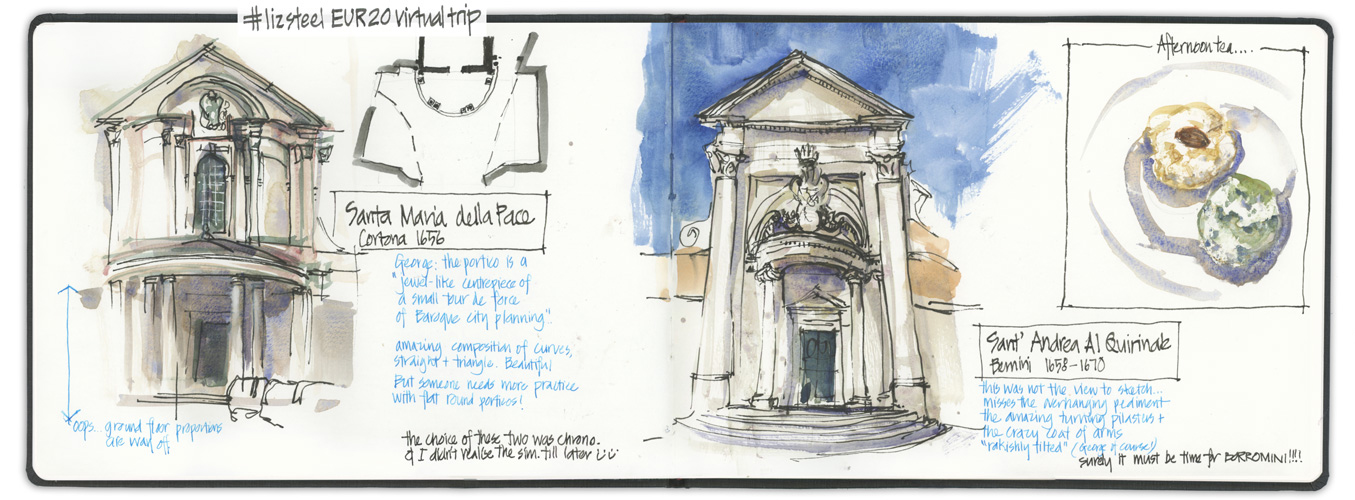 #lizsteel EUR20 virtual trip
Santa Maria della Pace
Cortona 1656
George: the portico is a
"jewel-like centrepiece of
a small tour de force
of Baroque city planning".
amazing composition of curves,
straight + triangle. Beautiful
But someone needs more practice
with flat round porticos!
oops... ground floor proportions
are way off
the choice of these two was chrono.
& I didn't realise the sim. till later
Afternoon tea....
Sant' Andrea Al Quirinale
Bernini 1658-1670
this was not the view to sketch...
misses the overhanging pediment
the amazing turning pilasters +
the crazy coat of arms
"rakishly tilted" (george of course)
surely it must be time for BORROMINI!!!!